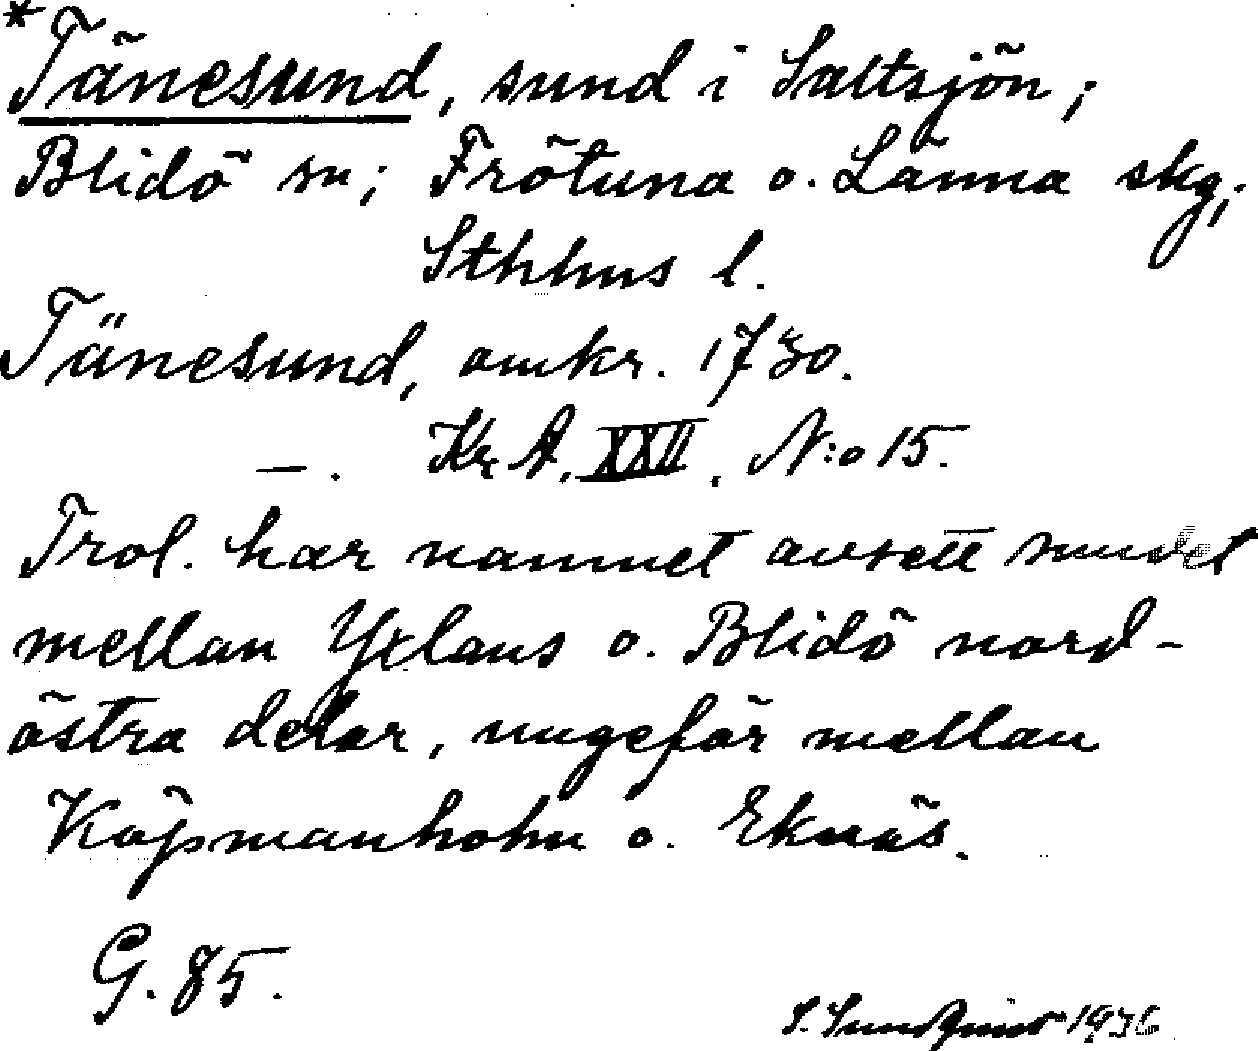 *Tänesund, sund i Saltsjön;
Blidö sn; Frötuna o. Länna skg;
Sthlms l.
Tänesund, omkr. 1730.
—. Kr.A. XXII, N:o 15.
Trol. har namnet avsett sundet
mellan Yxlans o. Blidö nord-
östra delar, ungefär mellan
Köpmanholm o. Eknäs.
G. 85.
S. Sundquist 1936